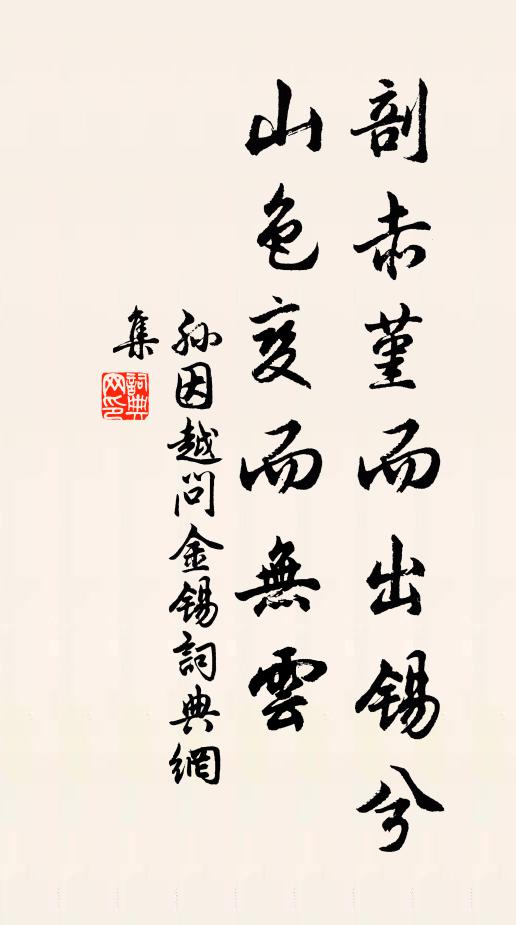 剖赤堇而出锡兮
山色变而無雲
孙因越问金锡詞典網
集
詞典
网印